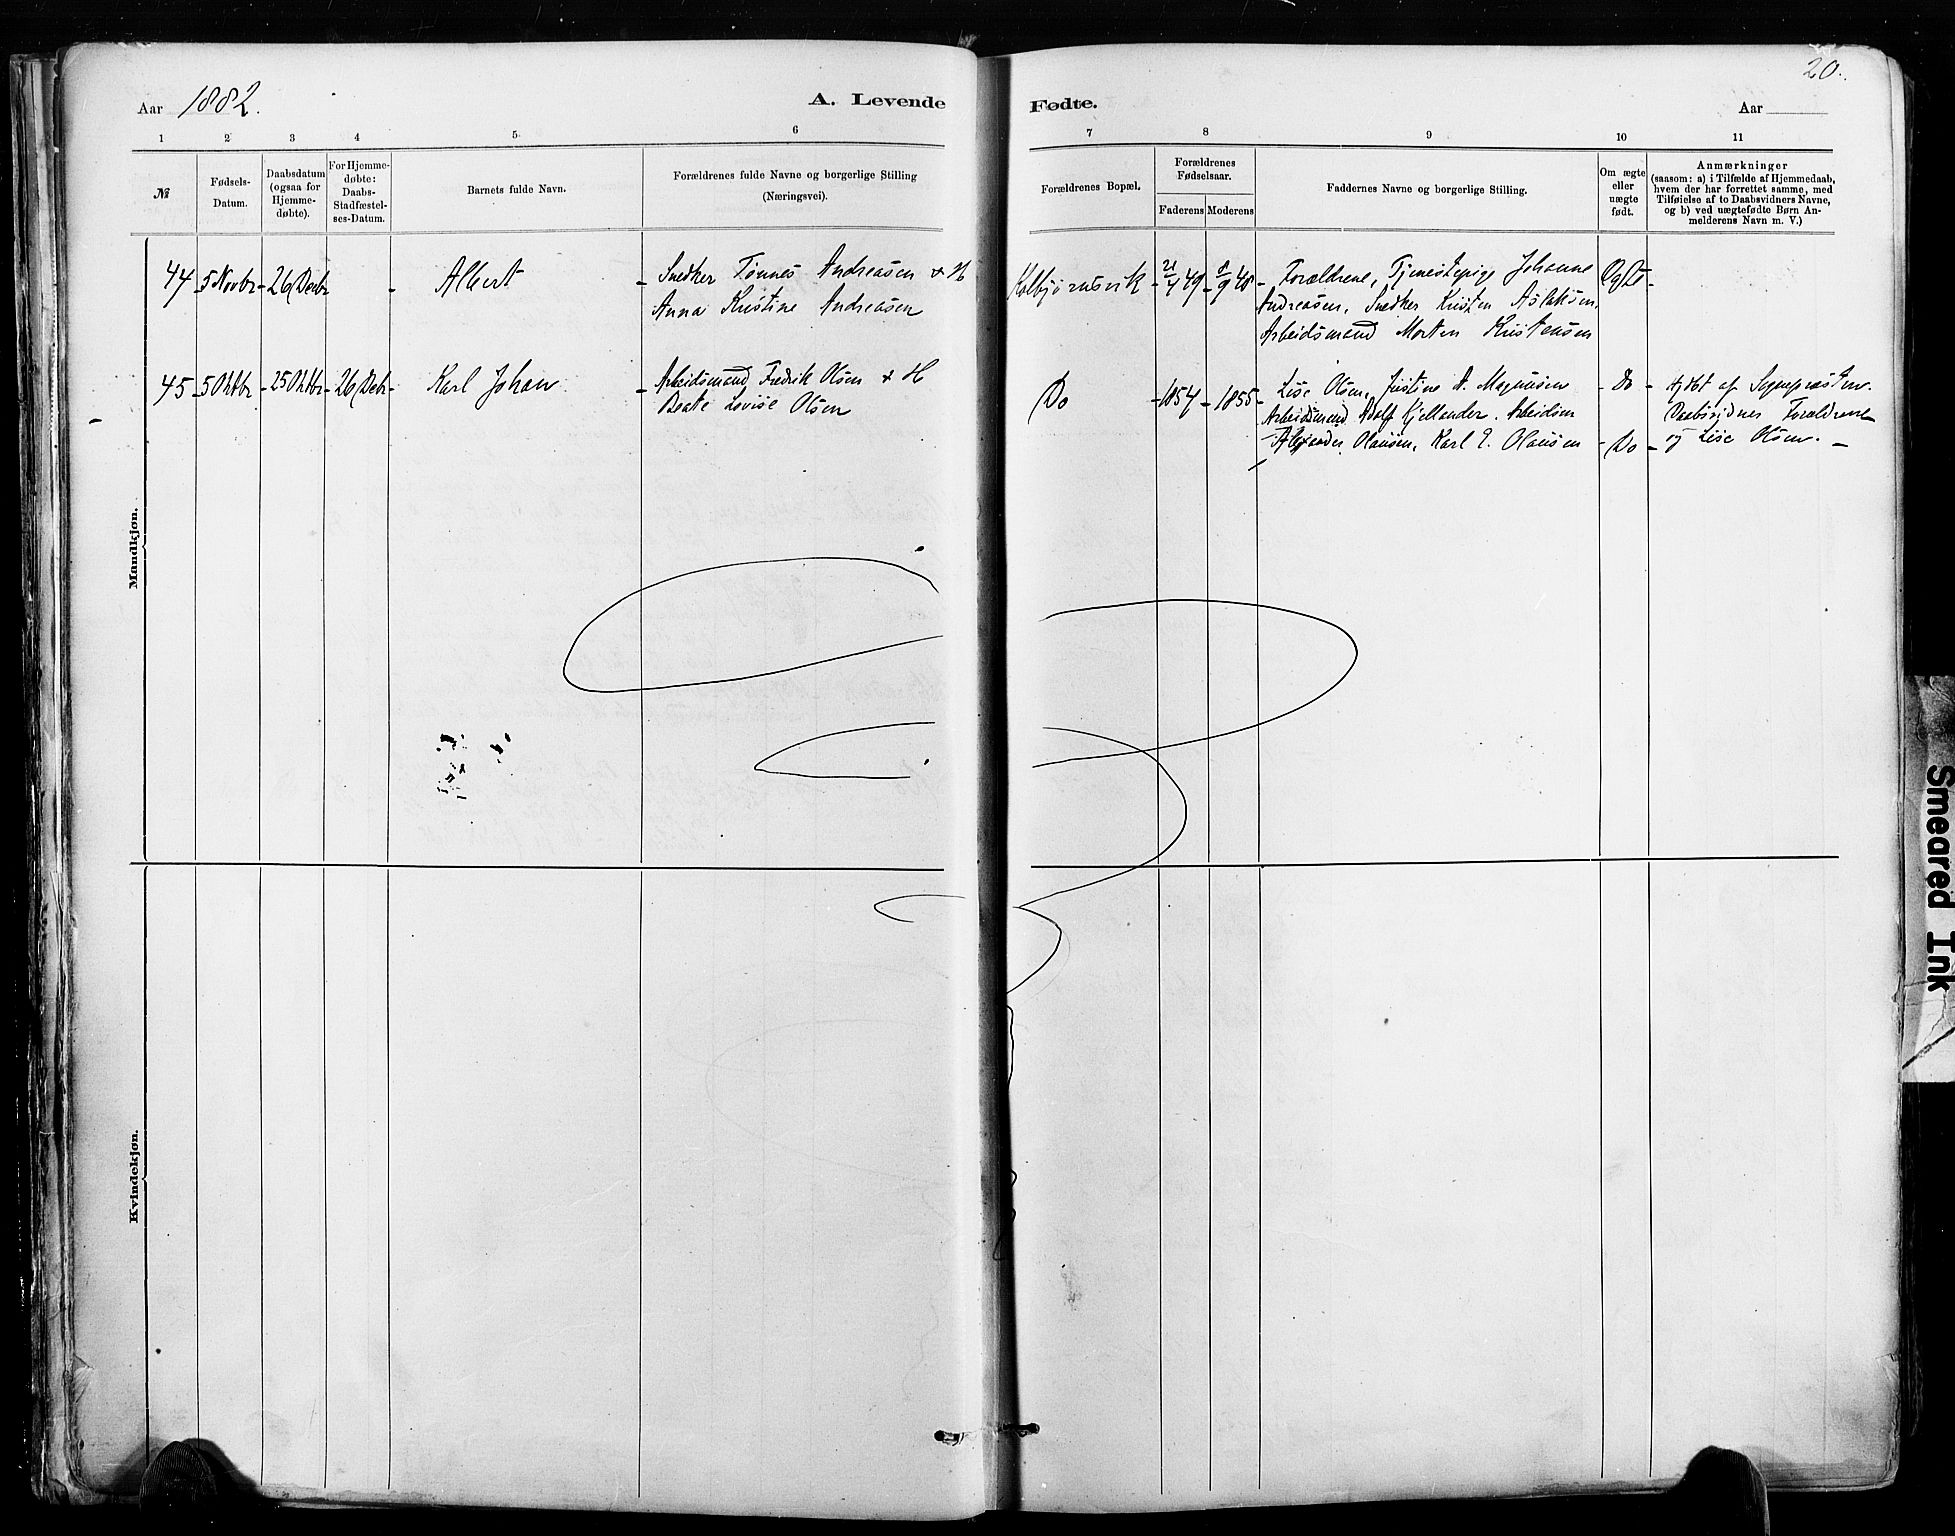 20.
Aar 1882.
A. Levende Fødte.
Aar
1 2 3 4 5 6 7 8 9 10 11
№
Fødsels-
Datum.
Daabsdatum
(ogsaa for
Hjemme-
døbte).
For Hjemme-
døbte:
Daabs-
Stadfæstel-
ses-Datum.
Barnets fulde Navn.
Forældrenes fulde Navne og borgerlige Stilling
(Næringsvei).
Forældrenes Bopæl.
Forældrenes
Fødselsaar.
Faderens Moderens
Faddernes Navne og borgerlige Stilling.
Om ægte
eller
uægte
født.
Anmærkninger
(saasom: a) i Tilfælde af Hjemmedaab,
hvem der har forrettet samme, med
Tilføielse af to Daabsvidners Navne,
og b) ved uægtefødte Børn An-
melderens Navn m. V.)
Mandkjøn.
44 - 5 Novbr - 26 Decbr - Albert - Snedker Tønnes Andreasen & H
Anna Kristine Andreasen
Kolbjørnsvik - 21/4 49 - 8/9 48 - Forældrene, Tjenestepige Johanne
Andreasen, Snedker Kristen Aslaksen,
Arbeidsmand Morten Kristensen
Ægte -
45 - 5 Oktbr - 25 Oktbr - 26 Decbr - Karl Johan - Arbeidsmand Fredrik Olsen & H
Beate Lovise Olsen
Do - 1854 - 1855 - Lise Olsen, Justine A. Magnusen
Arbeidsmand Adolf Kjellander. Arbeidsm
Alexander Olausen, Karl E. Olausen
- Do -
- Do -
Daabsvidner Forældrene
og Lise Olsen. -
Kvindekjøn.
Smeared Ink